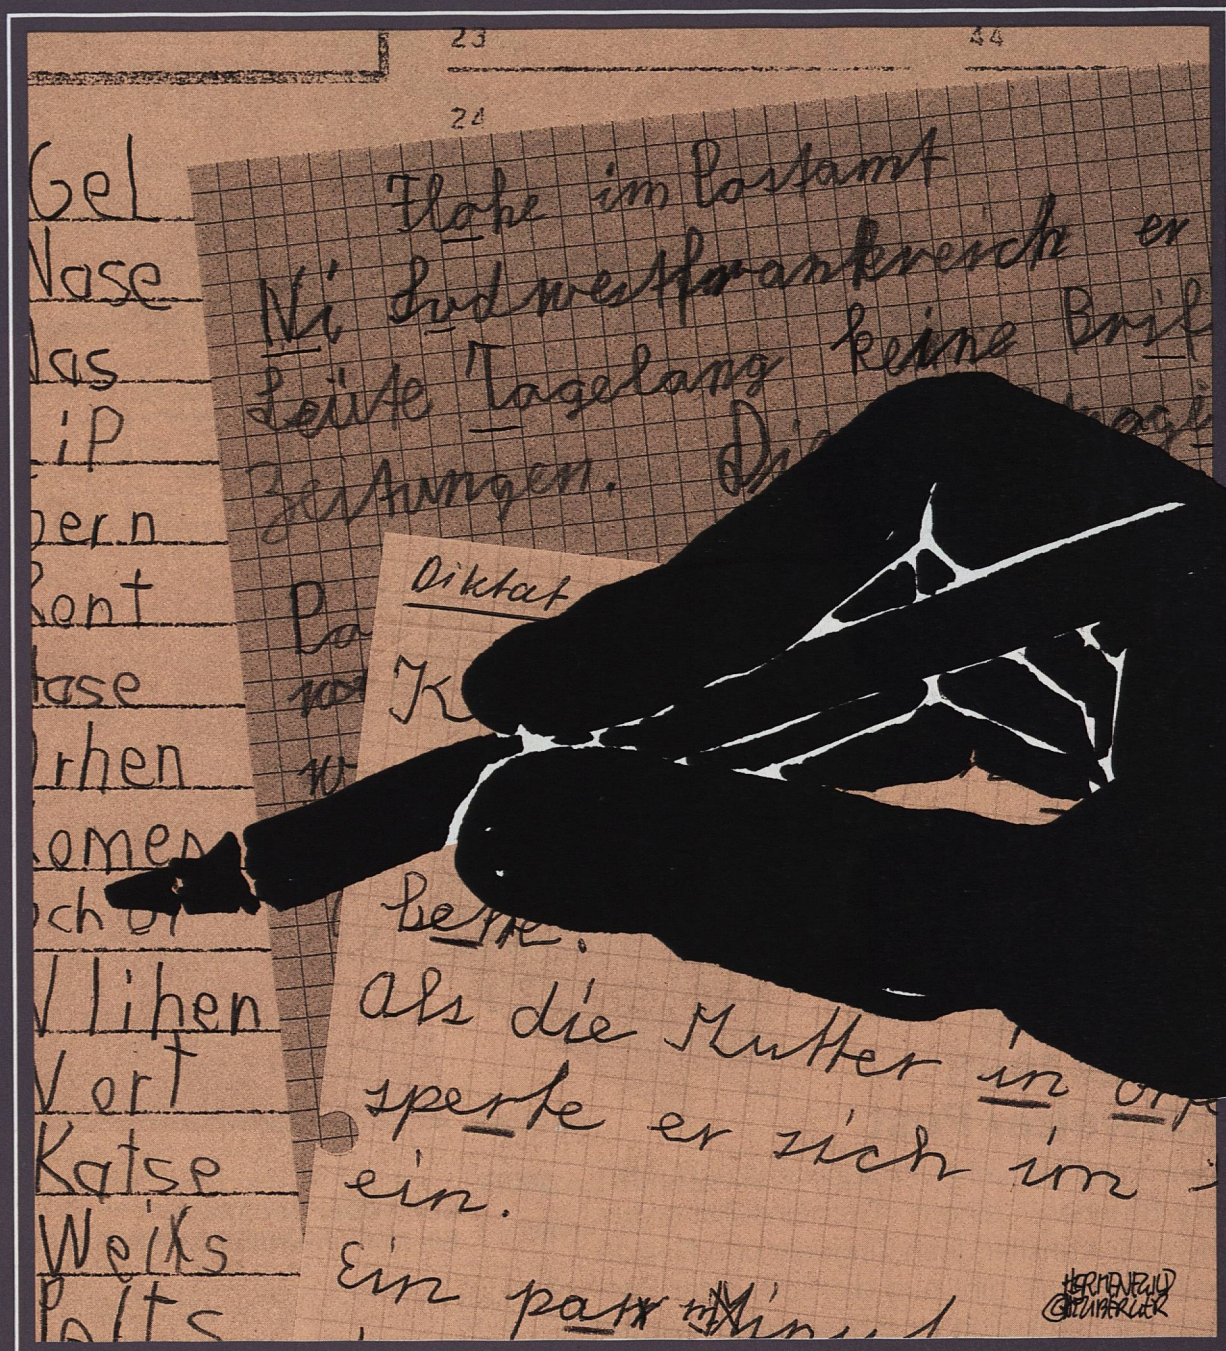 23 44
24
Gel
Nase
las
iP
gern
Kont
tase
rhen
komen
och
lihen
Vort
Katse
Weiks
Polts
Flohe im Postamt
Ni Sudwestfrankreich er
Leüte Tagelang keine Brif
zeitungen. Die
Diktat
K
bette.
Als die Mutter in
sperte er sich im
ein.
Ein parr
HERMENEGILD
©HEUBERGER